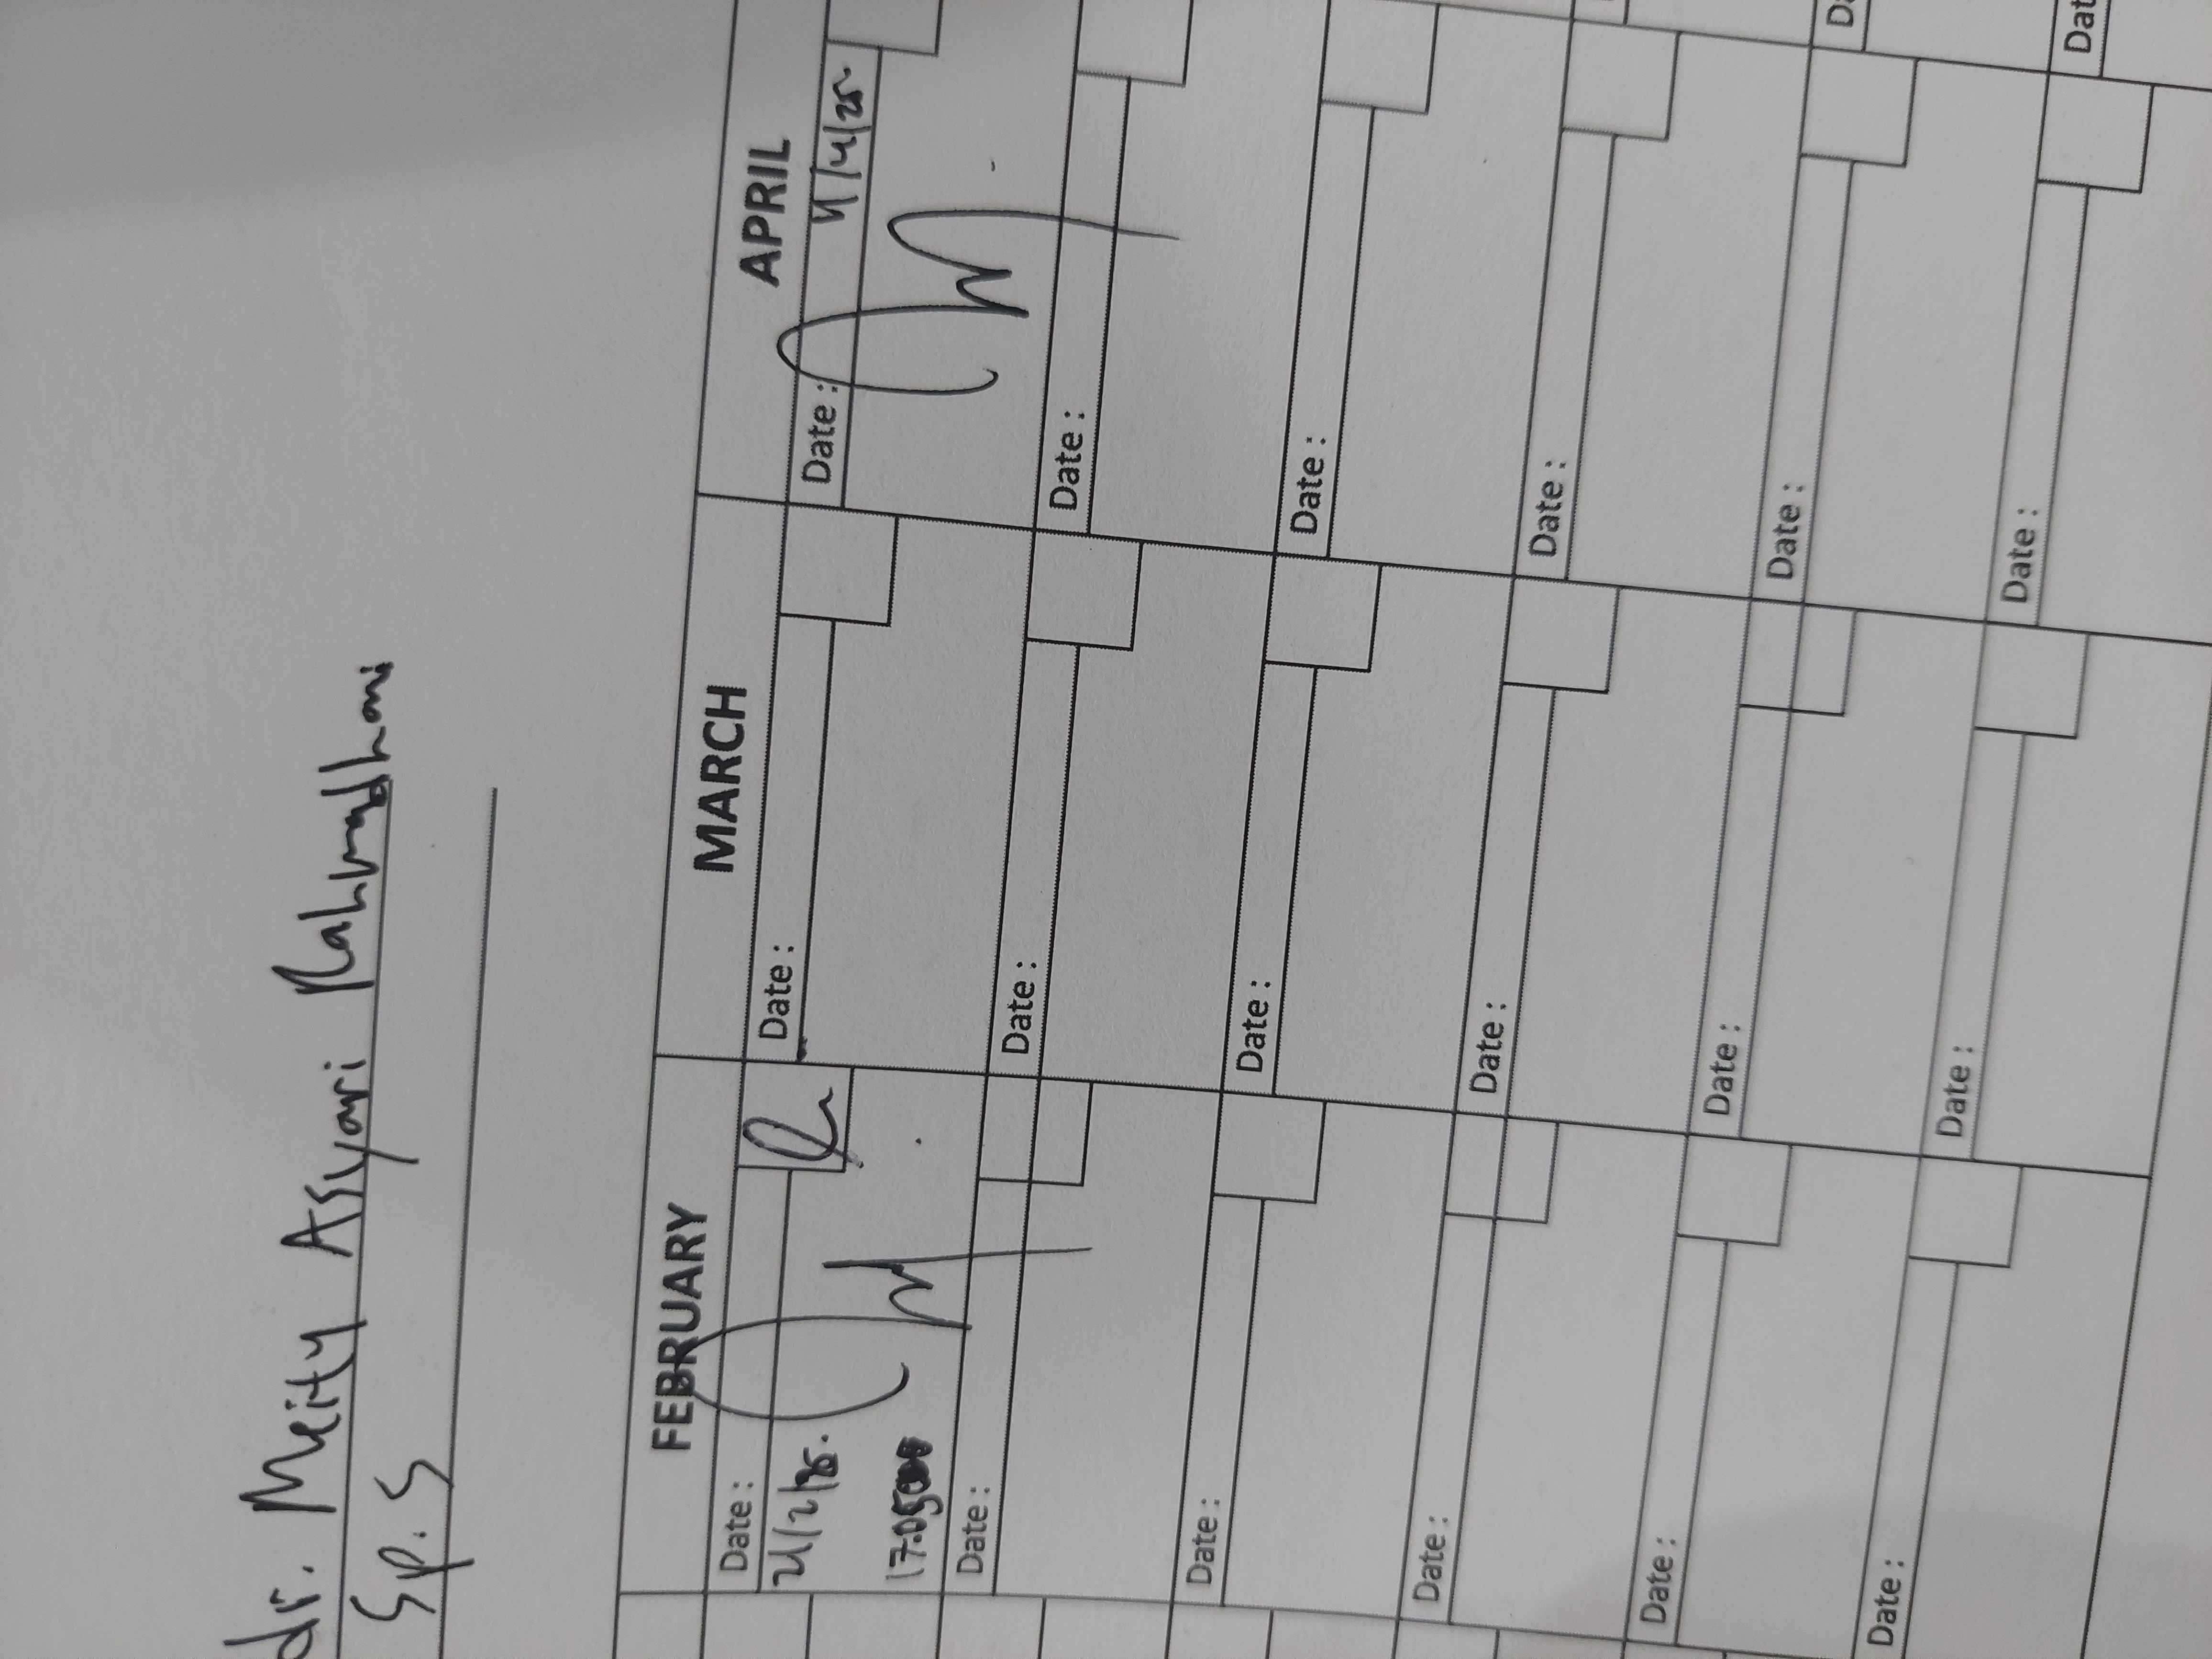 dr. Meity Assyari Rahmadhani
Sp. S
FEBRUARY MARCH APRIL
Date : Date : Date : 4/4/25
21/2/25.
17.05
Date : Date : Date :
Date : Date : Date :
Date : Date : Date :
Date : Date : Date :
Date : Date : Date :